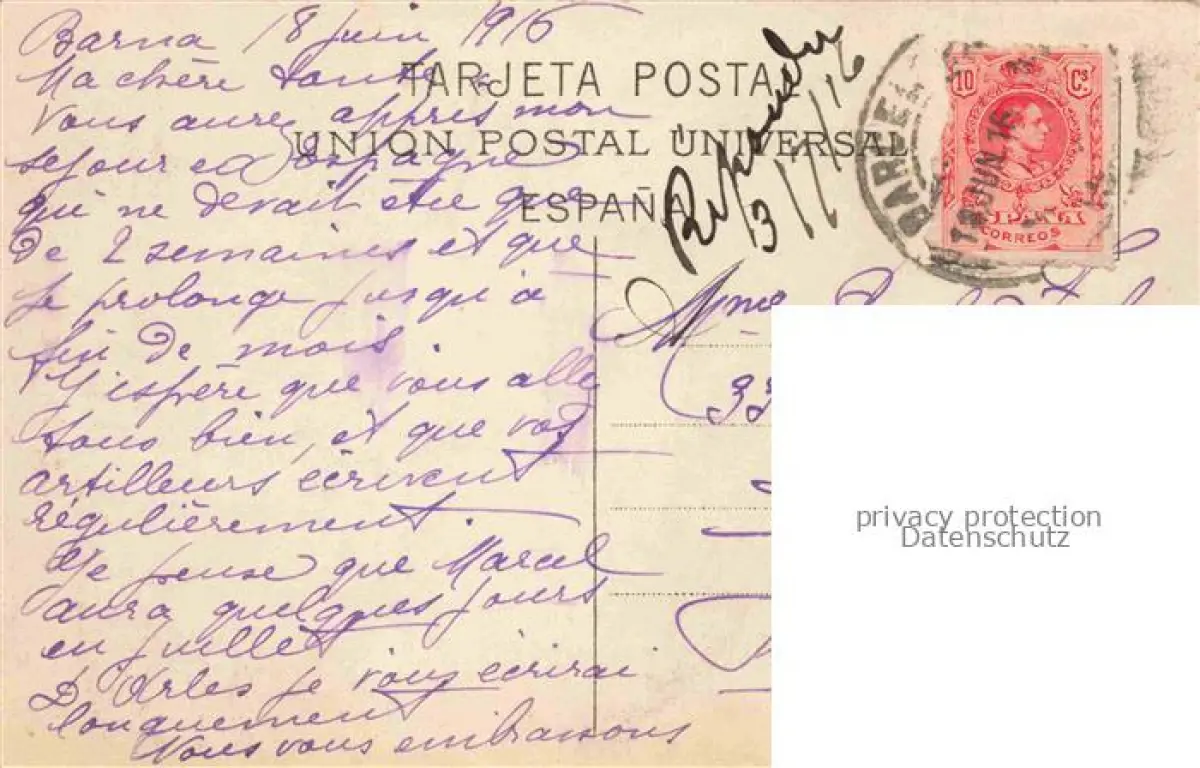 Barna 18 juin 1916
Ma chère tante
Vous avez appris mon
séjour en Espagne
qui ne devait être que
de 2 semaines et que
je prolonge jusqu'à
fin de mois.
J'espère que vous allez
tous bien, et que vos
artilleurs écrivent
régulièrement.
Je pense que Marcel
aura quelques jours
en juillet
D'Arles je vous écrirai
longuement
Nous vous embrassons
TARJETA POSTAL
UNIÓN POSTAL UNIVERSAL
ESPAÑA
Répondu
13/7/16
10 Cs
CORREOS
BARCE
JUN. 16
Mme
33
privacy protection
Datenschutz